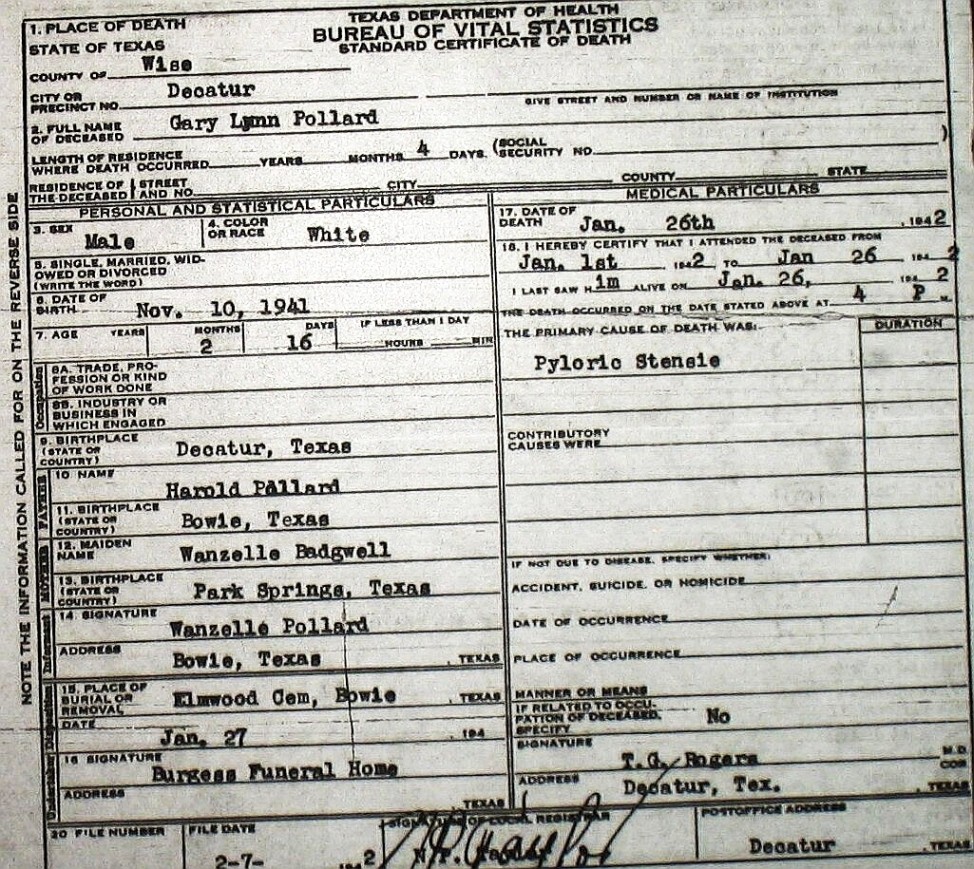 TEXAS DEPARTMENT OF HEALTH
BUREAU OF VITAL STATISTICS
STANDARD CERTIFICATE OF DEATH
1. PLACE OF DEATH
STATE OF TEXAS
COUNTY OF Wise
CITY OR PRECINCT NO. Decatur
GIVE STREET AND NUMBER OR NAME OF INSTITUTION
2. FULL NAME OF DECEASED Gary Lynn Pollard
LENGTH OF RESIDENCE WHERE DEATH OCCURRED YEARS MONTHS 4 DAYS. (SOCIAL SECURITY NO. )
RESIDENCE OF THE DECEASED STREET AND NO. CITY COUNTY STATE
PERSONAL AND STATISTICAL PARTICULARS
3. SEX Male 4. COLOR OR RACE White
5. SINGLE, MARRIED, WIDOWED OR DIVORCED (WRITE THE WORD)
6. DATE OF BIRTH Nov. 10, 1941
7. AGE YEARS MONTHS 2 DAYS 16 IF LESS THAN 1 DAY HOURS MIN
Occupation
8A. TRADE, PROFESSION OR KIND OF WORK DONE
8B. INDUSTRY OR BUSINESS IN WHICH ENGAGED
9. BIRTHPLACE (STATE OR COUNTRY) Decatur, Texas
FATHER
10 NAME Harold Pollard
11. BIRTHPLACE (STATE OR COUNTRY) Bowie, Texas
MOTHER
12. MAIDEN NAME Wanzelle Badgwell
13. BIRTHPLACE (STATE OR COUNTRY) Park Springs, Texas
Informant
14. SIGNATURE Wanzelle Pollard
ADDRESS Bowie, Texas , TEXAS
Disposition
15. PLACE OF BURIAL OR REMOVAL Elmwood Cem, Bowie , TEXAS
DATE Jan. 27 194
Undertaker
16 SIGNATURE Burgess Funeral Home
ADDRESS , TEXAS
MEDICAL PARTICULARS
17. DATE OF DEATH Jan. 26th , 1942
18. I HEREBY CERTIFY THAT I ATTENDED THE DECEASED FROM
Jan. 1st 1942 TO Jan 26 1942
I LAST SAW H im ALIVE ON Jan. 26, 1942
THE DEATH OCCURRED ON THE DATE STATED ABOVE AT 4 P M.
THE PRIMARY CAUSE OF DEATH WAS: DURATION
Pyloric Stensie
CONTRIBUTORY CAUSES WERE
IF NOT DUE TO DISEASE, SPECIFY WHETHER:
ACCIDENT, SUICIDE, OR HOMICIDE
DATE OF OCCURRENCE
PLACE OF OCCURRENCE
MANNER OR MEANS
IF RELATED TO OCCUPATION OF DECEASED, SPECIFY No
SIGNATURE T.G. Rogers M.D. COR
ADDRESS Decatur, Tex. , TEXAS
20 FILE NUMBER FILE DATE 2-7- 1942 SIGNATURE OF LOCAL REGISTRAR POSTOFFICE ADDRESS Decatur , TEXAS
NOTE THE INFORMATION CALLED FOR ON THE REVERSE SIDE